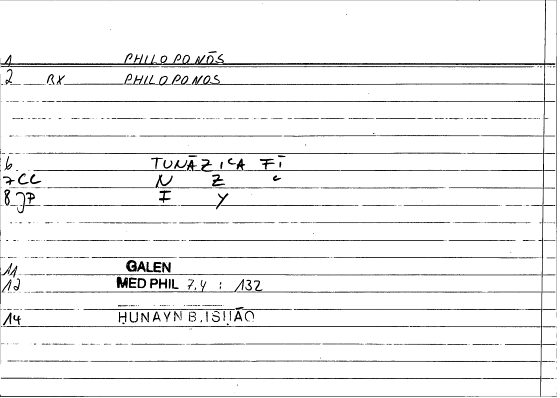 1 PHILOPONŌS
2 RX PHILOPONOS
6 TUNĀZIʿA FĪ
7 CC N Z ʿ
8 JP I Y
11 GALEN
12 MED PHIL 7.4 : 132
14 HUNAYN B. ISHĀQ